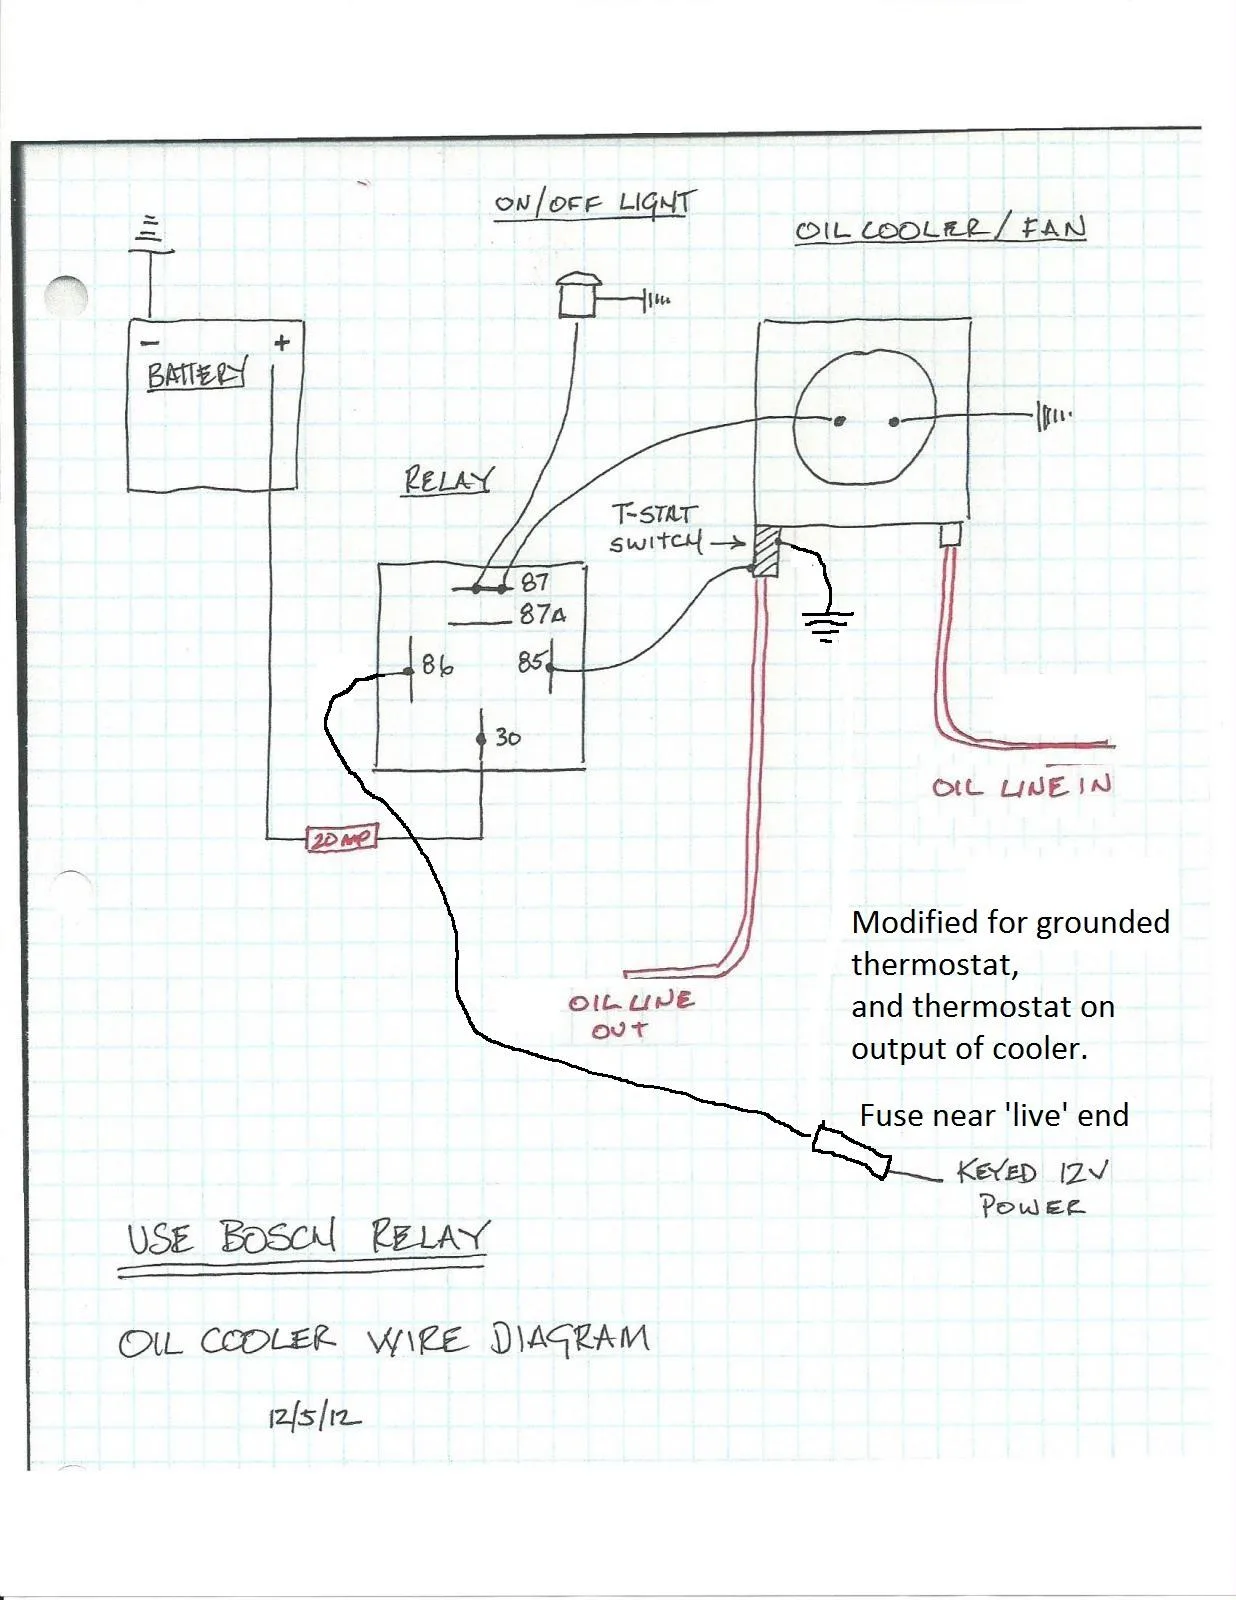 ON/OFF LIGHT
OIL COOLER / FAN
- +
BATTERY
RELAY
T-STAT
SWITCH
87
87A
86
85
30
20 AMP
OIL LINE IN
OIL LINE
OUT
Modified for grounded
thermostat,
and thermostat on
output of cooler.
Fuse near 'live' end
KEYED 12V
POWER
USE BOSCH RELAY
OIL COOLER WIRE DIAGRAM
12/5/12